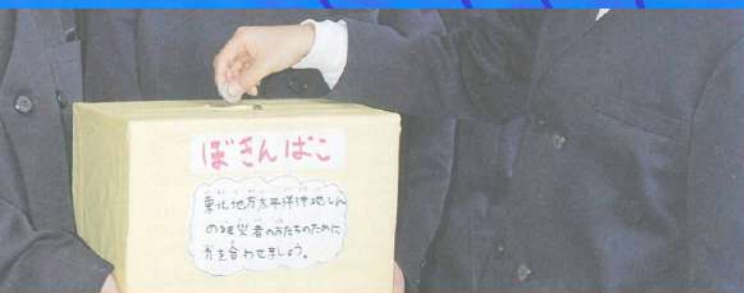 ぼきんばこ
東北地方太平洋沖地しん
のひ災者の方たちのために
力を合わせましょう。